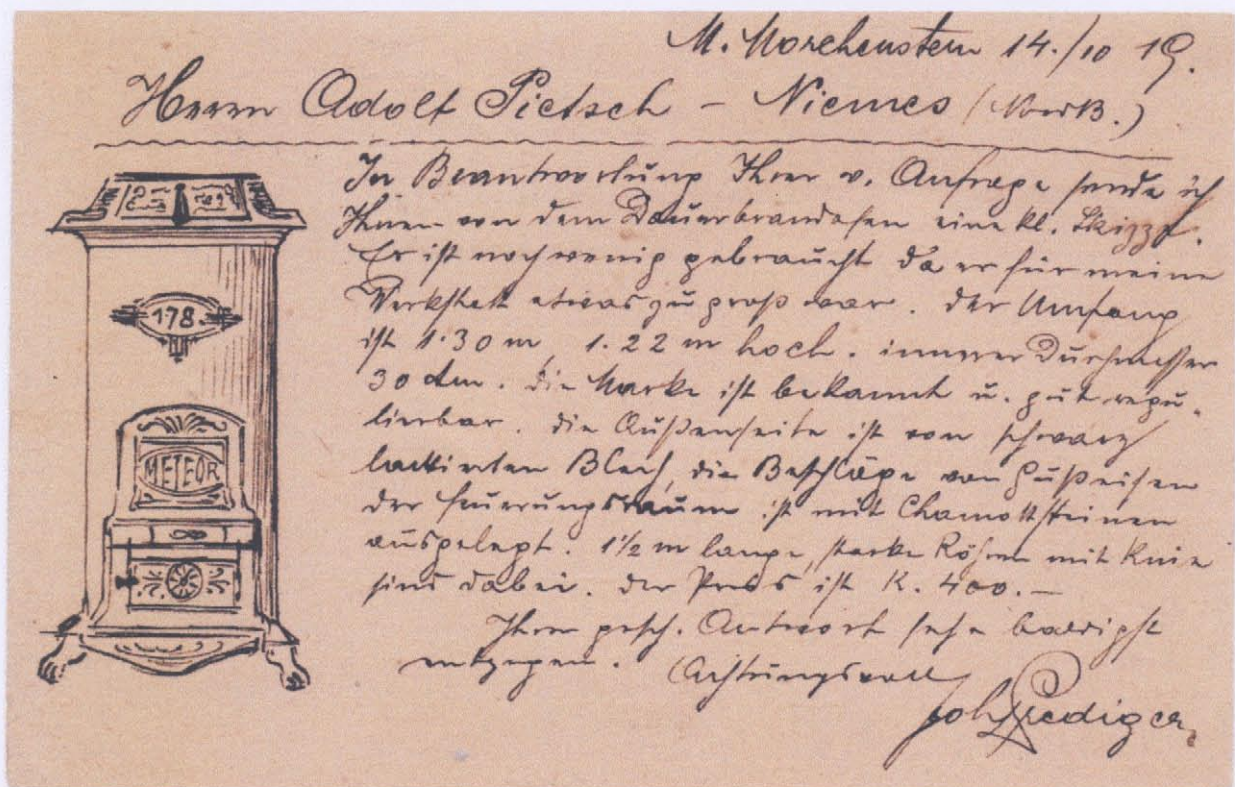 M. Morchenstern 14./10 19.
Herrn Adolf Pietsch – Niemes (NordB.)
In Beantwortung Ihrer v. Anfrage sende ich
Ihnen von dem Dauerbrandofen eine kl. Skizze.
Er ist noch wenig gebraucht da er für meine
Werkstatt etwas zu groß war. Der Umfang
ist 1·30 m, 1.22 m hoch. innerer Durchmesser
30 dm. Die Marke ist bekannt u. gut regu-
lierbar. Die Außenseite ist von schwarz
lackierten Blech, die Beschläge von Gußeisen
der Feuerungsraum ist mit Chamottsteinen
ausgelegt. 1½ m lange, starke Röhren mit Knie
sind dabei. Der Preis ist K. 400.–
Ihrer gesch. Antwort sehe baldigst
entgegen. Achtungsvoll
Joh. Prediger
178
METEOR